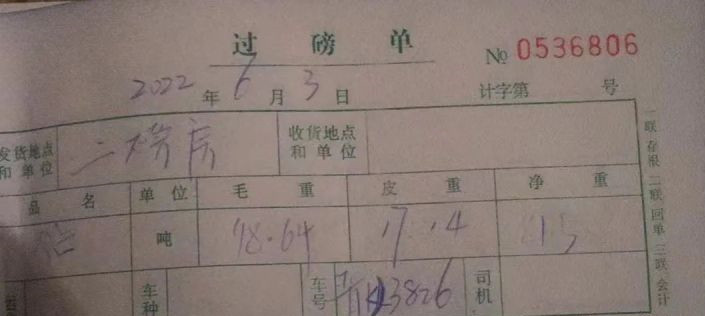 过磅单
№ 0536806
2022 年 6 月 3 日 计字第 号
发货地点和单位 二 房 收货地点和单位
品名 单位 毛重 皮重 净重
吨 48.64 17.14
车种 车号 3826 司机
一联存根 二联回单 三联会计